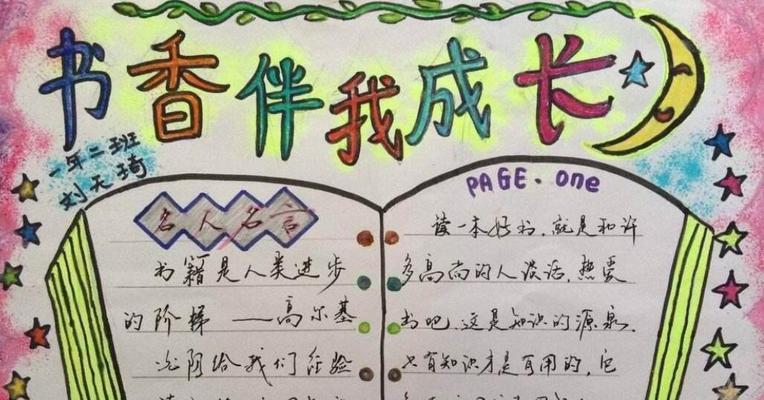 书香伴我成长
一年二班
刘天琦
PAGE. one
名人名言
书籍是人类进步
的阶梯 ——高尔基
光阴给我们经验
读一本好书，就是和许
多高尚的人谈话，热爱
书吧，这是知识的源泉，
只有知识才是有用的，它